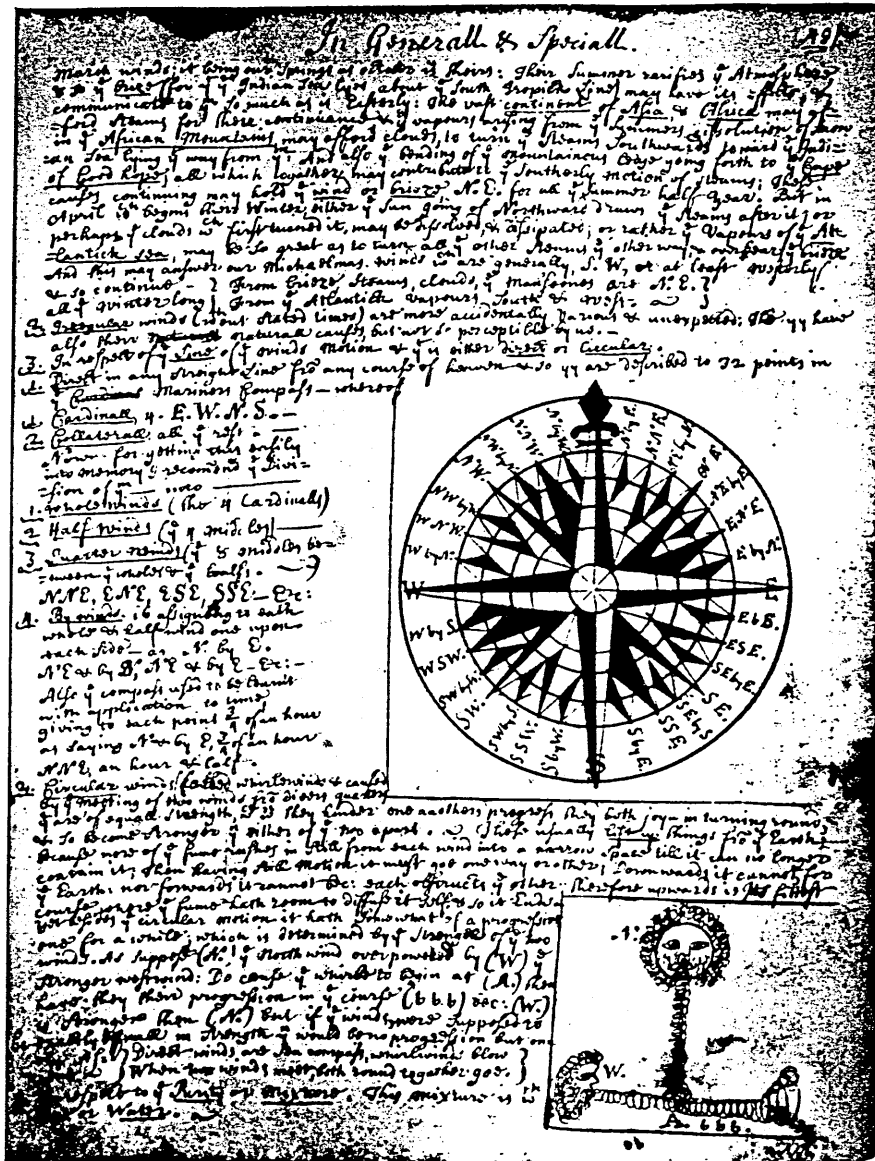 In Generall & Speciall.
March winds; it being our Spring as October is theirs: Their Summer rarifies yᵉ Atmosphere
yᵉ Indian Sea lyes about yᵉ South Tropick Line may have its effects &
communicate to yᵉ so much as is Easterly: The vast continent of Asia & Africa may af-
=ford Steams for there continuance & yᵉ vapours arising from yᵉ Summers dissolution of snow
in yᵉ African Mountains, may afford clouds, to turn yᵉ Steams Southwards toward yᵉ Indi-
can Sea lying yᵉ way from yᵐ: And also yᵉ bending of yᵉ mountainous Ledge going forth to yᵉ Cape
of Good hope; all which together may contribute to yᵉ Southerly motion of Steams; These
causes continuing may hold yᵉ wind or brieze N.E. for all yᵉ summer half year. But in
April wᶜʰ begins their Winter, either yᵉ Sun going of Northward draws yᵉ steams after it; or
perhaps yᵉ clouds wᶜʰ first turned it, may be dissolved & dissipated; or rather yᵉ Vapours of yᵉ At-
=lantick sea, may be so great as to turn all yᵉ other Steams yᵉ other way, & overbear yᵉ brieze
And this may answer our Michaelmas winds wᶜʰ are generally, S.W, or at least westerly
& so continue – } From brieze steams, clouds, yᵉ Monsoones are N.E. }
all yᵉ winter long } From yᵉ Atlantick Vapours South & West – }
2. Irregular winds (without stated times) are more accidentally various & unexpected; Tho yy have
also their naturall causes, but not so perceptible by us. –
3. In respect of yᵉ Line of yᵉ winds motion & yᵗ is either direct or Circular.
1. Direct in any streight Line frō any course of heaven & so yy are described to 32 points in
yᵉ Mariners Compass – whereof
1. Cardinall 4. E. W. N. S. –
2. Collaterall all yᵉ rest –
Now for getting this easily
into memory I recomend yᵉ divi-
=sion of into
1. Whole winds (the 4 Cardinalls)
2. Half winds (yᵉ 4 midles)
3. Quarter winds (yᵉ 8 midles be-
=tween yᵉ wholes & yᵉ halfs.
NNE, ENE, ESE, SSE – &c:
4. By winds. is assigning to each
whole & half wind one upon
each side – as N. by E.
N.E & by N, NE & by E – &c: –
Also yᵉ compass used to be learnt
with application to time
giving to each point ¾ of an hour
as saying N. & by E, ¾ of an hour
NNE, an hour & half.
N. by E.
N.N.E.
N.E. by N.
N.E.
N.E. by E.
E.N.E.
E. by N.
E.
E b E.
E S E.
S E by E.
S E.
S E by S
S S E.
S by E.
S
S by W.
S S W.
S W by S
S W.
S W by W.
W S W.
W by S.
W
W by N.
W N W.
N W by W.
N. W.
N W by N.
N. N W.
N. by W.
2. Circular winds called whirlwinds & caused
by yᵉ meeting of two winds frō divers quarters
yᵗ are of equall strength, & as they hinder one anothers progress they both joyn in turning round,
& so become stronger yⁿ either of yᵉ two apart. These usually lift up things frō yᵉ Earth;
because more of yᵉ fume rushes in still from each wind into a narrow space till it can no longer
contain it; then having still motion it must goe one way or other; Downwards it cannot for
yᵉ Earth: nor forwards it cannot bec: each obstructs yᵉ other: therefore upwards is its fittest
course where yᵉ fume hath room to diffuse it self & so it Ends.
yet besides yᵉ circular motion it hath somewhat of a progressive
one for a while; which is determined by yᵉ strength of yᵉ two
winds. As suppose (N.) yᵉ North wind overpowered by (W) yᵉ
stronger westwind: Do cause yᵉ whirle to begin at (A.) then
have they their progression in yᵉ course (b b b) bec: (W.)
is stronger then (N.) but if yᵉ winds were supposed to
equall in strength yʳ would be no progression but one
} Direct winds are Sea compass, whirlwinds blow }
} When two winds meet, both round together goe. }
respect to yᵉ Purity or Mixture. This mixture is wᵗʰ
or Water.
N.
W.
A. b b b.